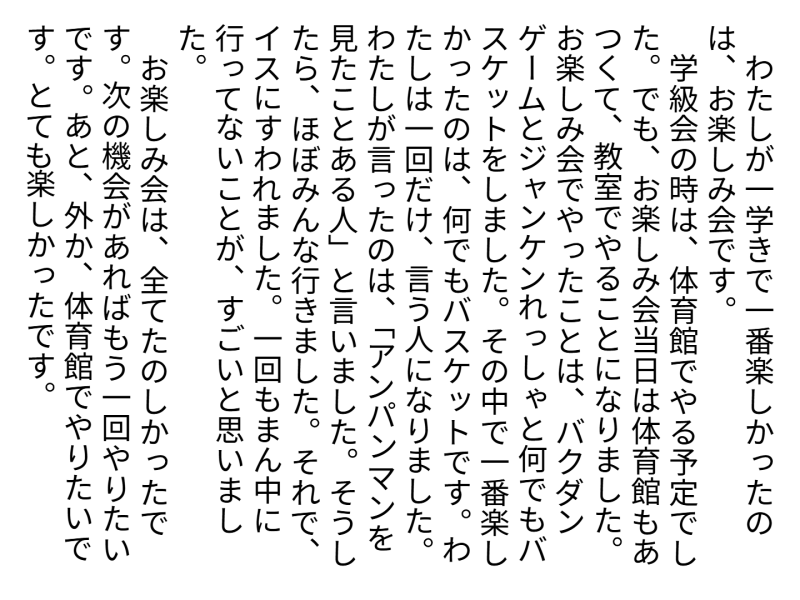 わたしが一学きで一番楽しかったの
は、お楽しみ会です。
　学級会の時は、体育館でやる予定でし
た。でも、お楽しみ会当日は体育館もあ
つくて、教室でやることになりました。
お楽しみ会でやったことは、バクダン
ゲームとジャンケンれっしゃと何でもバ
スケットをしました。その中で一番楽し
かったのは、何でもバスケットです。わ
たしは一回だけ、言う人になりました。
わたしが言ったのは、「アンパンマンを
見たことある人」と言いました。そうし
たら、ほぼみんな行きました。それで、
イスにすわれました。一回もまん中に
行ってないことが、すごいと思いまし
た。
　お楽しみ会は、全てたのしかったで
す。次の機会があればもう一回やりたい
です。あと、外か、体育館でやりたいで
す。とても楽しかったです。